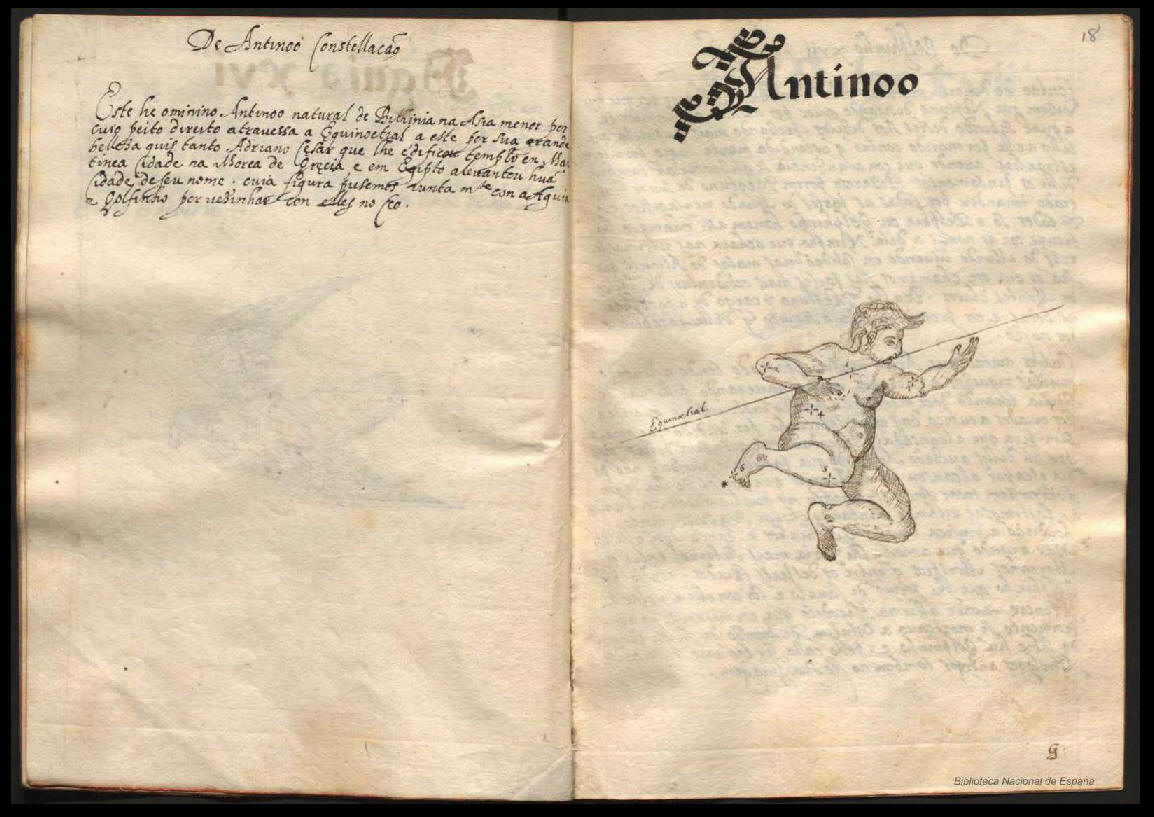 De Antinoo Constellação
Este he o minino Antinoo natural de Bithinia na Asia menor por
cuio peito direito atrauessa a Equinoctial a este por sua grande
belleza quis tanto Adriano Cesar que lhe edificou templo en Man
tinea Cidade na Morea de Grecia, e em Egipto aleuantou huã
Cidade de seu nome. cuia figura pusemos iunta mte con a Aguia
e Golfinho por vesinhar con elles no Ceo.
18
Antinoo
Equinoctial
G
Biblioteca Nacional de España